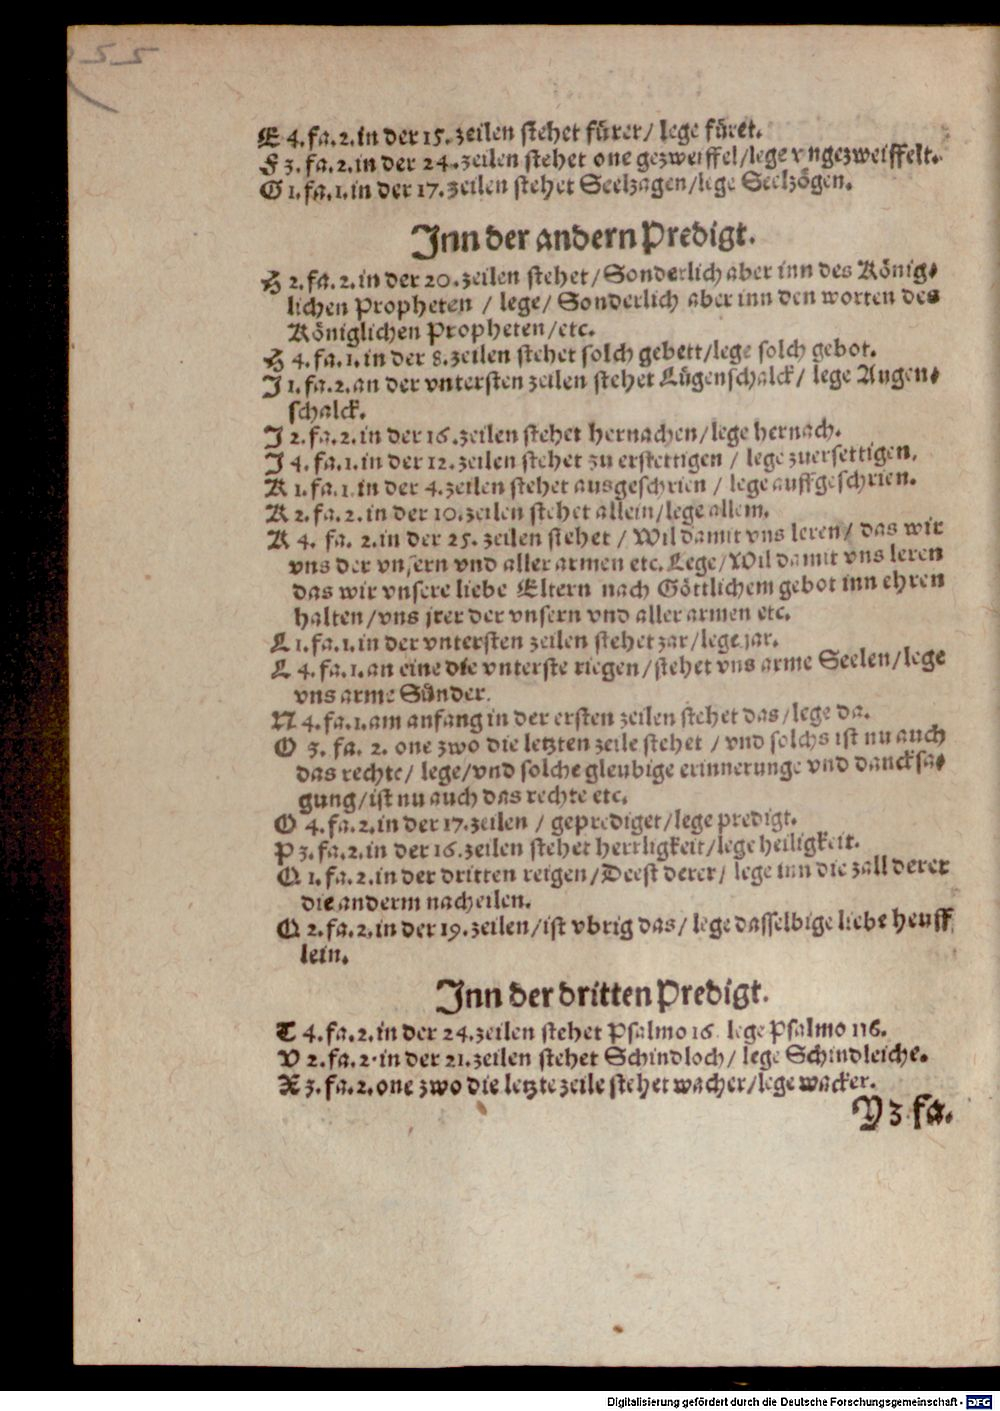 55
E 4. fa. 2. in der 15. zeilen stehet fürer/ lege füret.
F 3. fa. 2. in der 24. zeilen stehet one gezweiffel/lege vngezweiffelt.
G 1. fa. 1. in der 17. zeilen stehet Seelzagen/lege Seelzögen.
Inn der andern Predigt.
H 2. fa. 2. in der 20. zeilen stehet/Sonderlich aber inn des König⸗
lichen Propheten / lege/ Sonderlich aber inn den worten des
Königlichen Propheten/etc.
H 4. fa. 1. in der 8. zeilen stehet solch gebett/lege solch gebot.
I 1. fa. 2. an der vntersten zeilen stehet Lügenschalck/ lege Augen⸗
schalck.
I 2. fa. 2. in der 16. zeilen stehet hernachen/lege hernach.
I 4. fa. 1. in der 12. zeilen stehet zu erstettigen / lege zuersettigen.
K 1. fa. 1. in der 4. zeilen stehet ausgeschrien / lege auffgeschrien.
K 2. fa. 2. in der 10. zeilen stehet allein/lege allem.
K 4. fa. 2. in der 25. zeilen stehet / Wil damit vns leren/ das wir
vns der vnsern vnd aller armen etc. Lege/Wil damit vns leren
das wir vnsere liebe Eltern nach Göttlichem gebot inn ehren
halten/vns jrer der vnsern vnd aller armen etc.
L 1. fa. 1. in der vntersten zeilen stehet zar/lege jar.
L 4. fa. 1. an eine die vnterste riegen/stehet vns arme Seelen/lege
vns arme Sünder.
N 4. fa. 1. am anfang in der ersten zeilen stehet das/lege da.
O 3. fa. 2. one zwo die letzten zeile stehet / vnd solchs ist nu auch
das rechte/ lege/vnd solche gleubige erinnerunge vnd dancksa⸗
gung/ist nu auch das rechte etc.
O 4. fa. 2. in der 17. zeilen / geprediget/lege predigt.
P 3. fa. 2. in der 16. zeilen stehet herrligkeit/lege heiligkeit.
Q 1. fa. 2. in der dritten reigen/Deest derer/ lege inn die zall derer
die anderm nacheilen.
Q 2. fa. 2. in der 19. zeilen/ist vbrig das/ lege dasselbige liebe heuff
lein.
Inn der dritten Predigt.
T 4. fa. 2. in der 24. zeilen stehet Psalmo 16. lege Psalmo 116.
V 2. fa. 2. in der 21. zeilen stehet Schindloch/ lege Schindleiche.
X 3. fa. 2. one zwo die letzte zeile stehet wacher/lege wacker.
Y 3 fa.
Digitalisierung gefördert durch die Deutsche Forschungsgemeinschaft - DFG